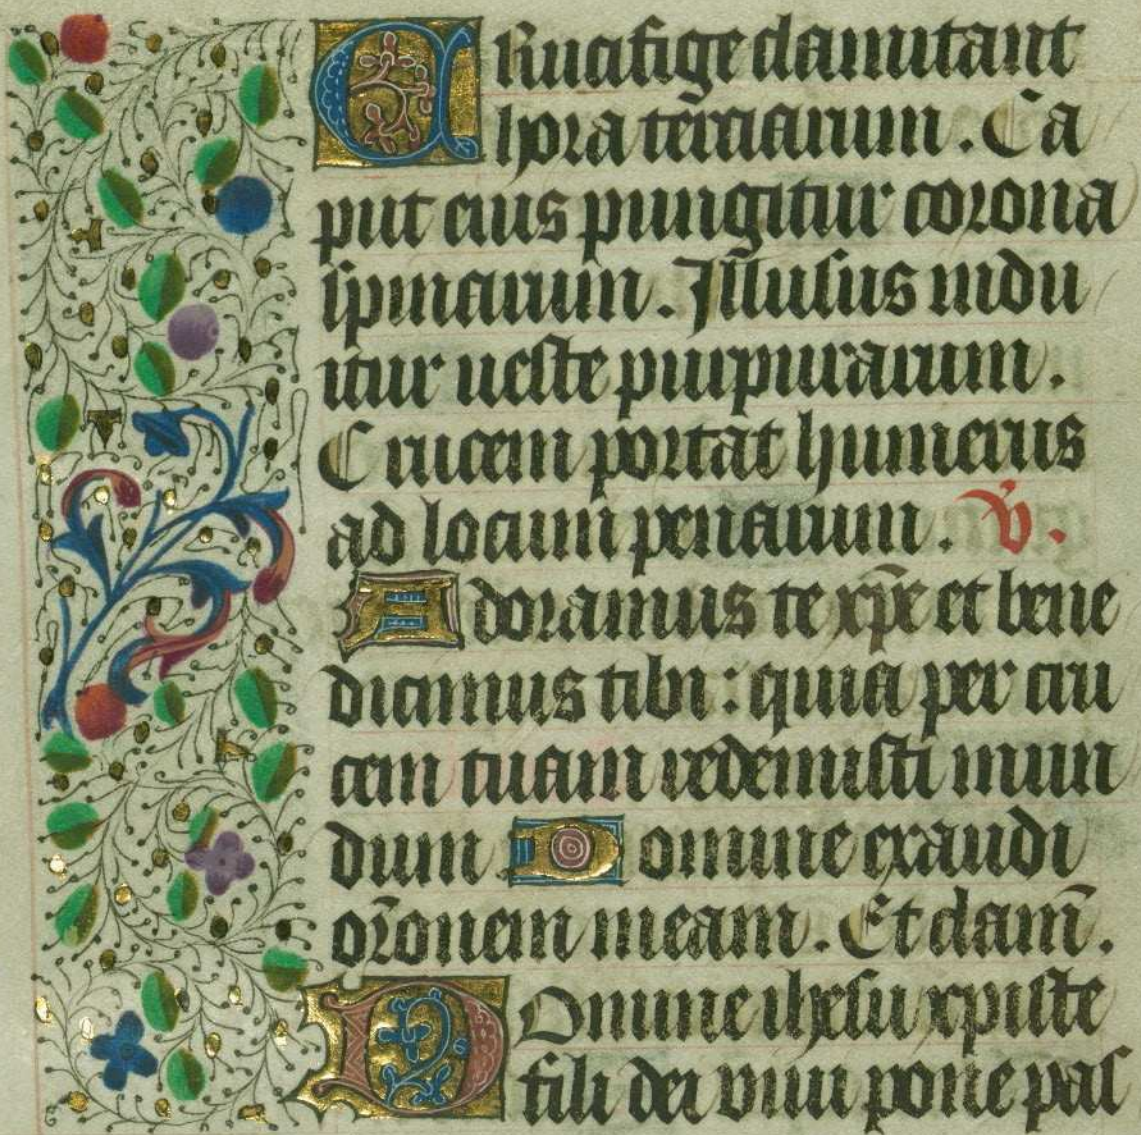 CRucifige clamitant
hora tērciarum. Ca
put eius pungitur corona
spinarum. Illusus indu
itur ueste purpurarum.
Crucem portat humerus
ad locum penarum. V̄.
Adoramus te xp̄e et bene
dicimus tibi: quia per cru
cem tuam redemisti mun
dum. Domine exaudi
or̄onem meam. Et clam̄.
DOmine ihesu xpiste
fili dei viui pone pas